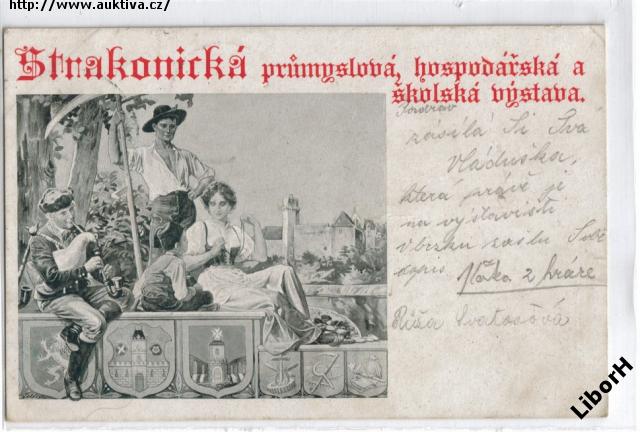 http://www.auktiva.cz/
Strakonická průmyslová, hospodářská a
školská výstava.
Pozdrav
zasílá Si Tvá
Vláduška,
která právě je
na výstavisti
V brzku zašlu Tobě
dopis
Růža Svatošová
LiborH